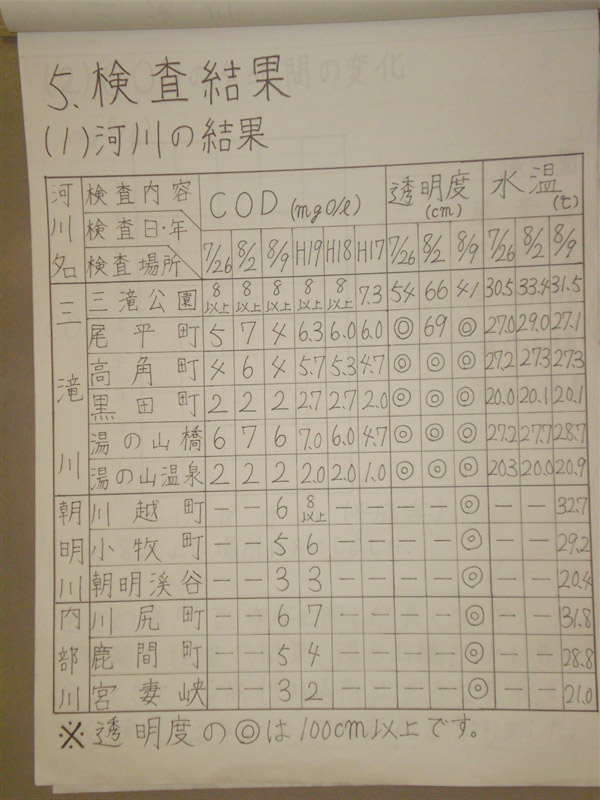 5.検査結果
(1)河川の結果
河川名 検査内容 COD(mgO/l) 透明度(cm) 水温(℃)
検査日・年
検査場所 7/26 8/2 8/9 H19 H18 H17 7/26 8/2 8/9 7/26 8/2 8/9
三滝川 三滝公園 8以上 8以上 8以上 8以上 8以上 7.3 54 66 41 30.5 33.4 31.5
尾平町 5 7 4 6.3 6.0 6.0 ◎ 69 ◎ 27.0 29.0 27.1
高角町 4 6 4 5.7 5.3 4.7 ◎ ◎ ◎ 27.2 27.3 27.3
黒田町 2 2 2 2.7 2.7 2.0 ◎ ◎ ◎ 20.0 20.1 20.1
湯の山橋 6 7 6 7.0 6.0 4.7 ◎ ◎ ◎ 27.2 27.7 28.7
湯の山温泉 2 2 2 2.0 2.0 1.0 ◎ ◎ ◎ 20.3 20.0 20.9
朝明川 川越町 — — 6 8以上 — — — — ◎ — — 32.7
小牧町 — — 5 6 — — — — ◎ — — 29.2
朝明渓谷 — — 3 3 — — — — ◎ — — 20.4
内部川 川尻町 — — 6 7 — — — — ◎ — — 31.8
鹿間町 — — 5 4 — — — — ◎ — — 28.8
宮妻峡 — — 3 2 — — — — ◎ — — 21.0
※透明度の◎は100cm以上です。